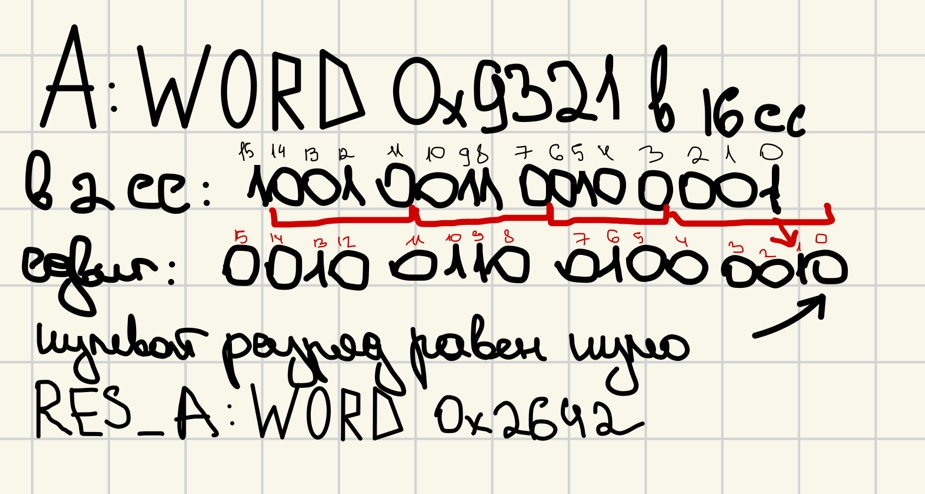 A: WORD 0x9321 в 16 сс
15 14 13 12 11 10 9 8 7 6 5 4 3 2 1 0
в 2 сс: 1001 0011 0010 0001
15 14 13 12 11 10 9 8 7 6 5 4 3 2 1 0
сдвиг: 0010 0110 0100 0010
нулевой разряд равен нулю
RES_A: WORD 0x2642